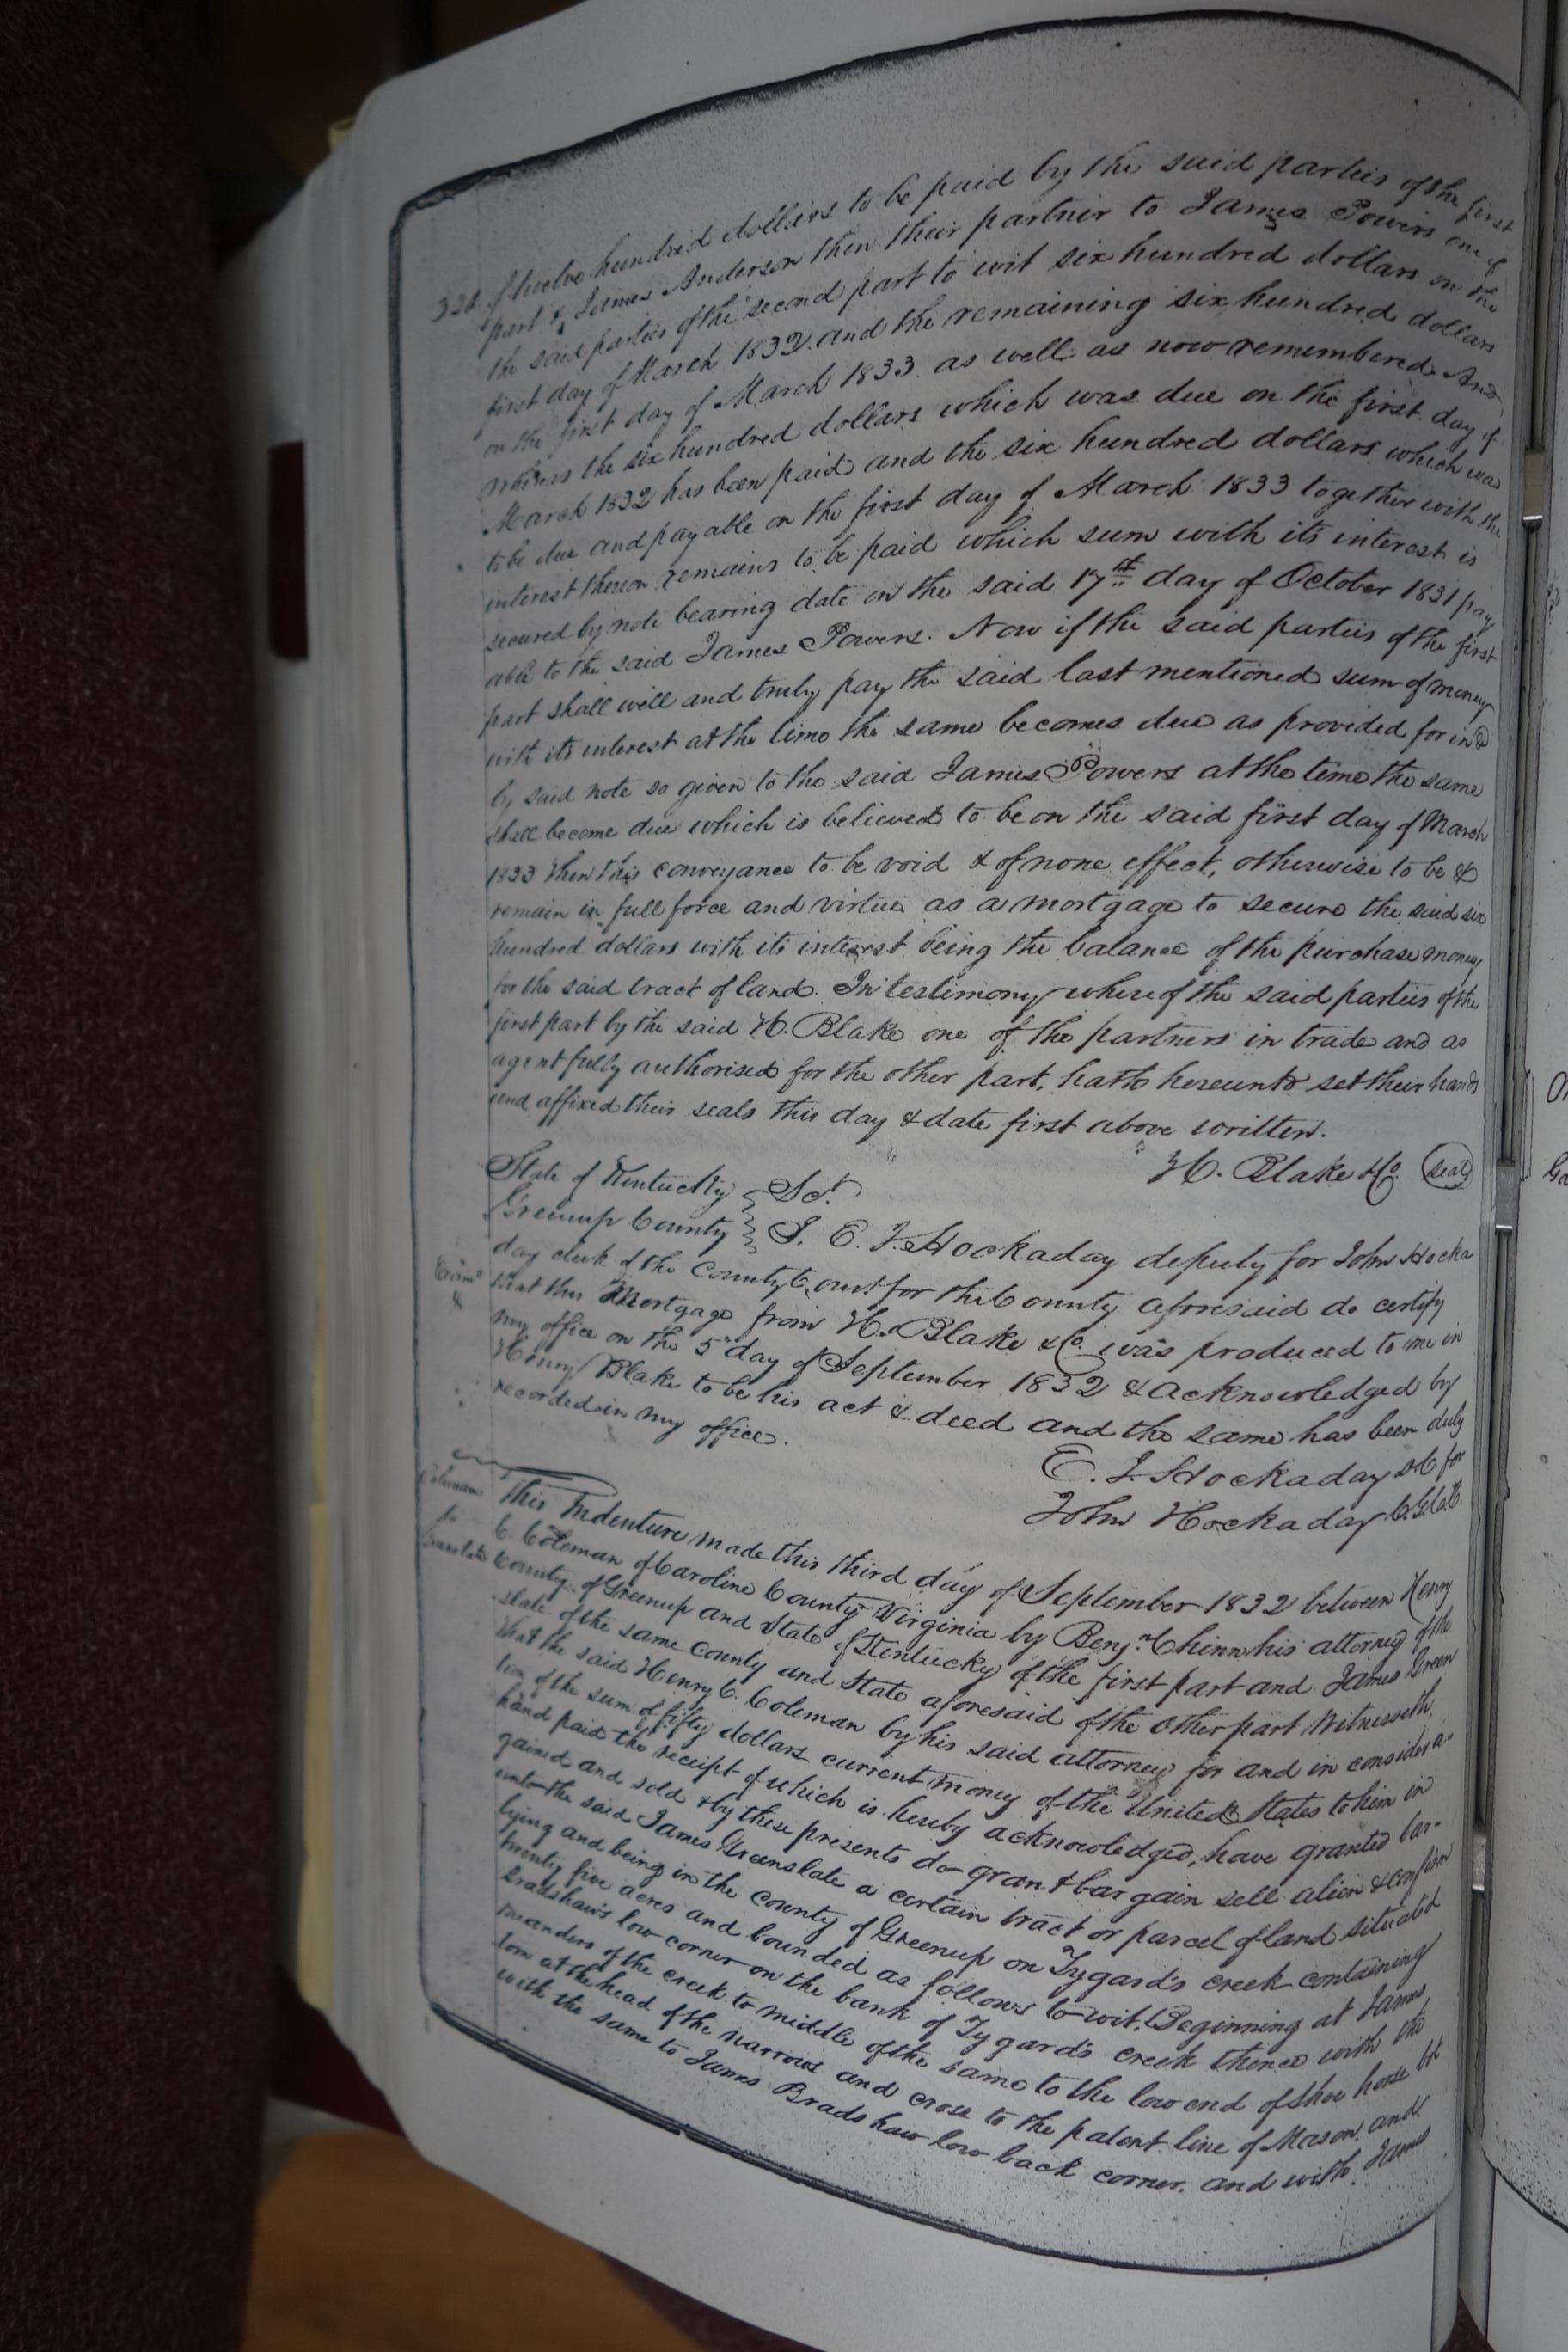 of twelve hundred dollars to be paid by the said parties of the first
part & James Anderson then their partner to James Powers one of
the said parties of the second part to wit six hundred dollars on the
first day of March 1832 and the remaining six hundred dollars
on the first day of March 1833 as well as now remembered And
whereas the six hundred dollars which was due on the first day of
March 1832 has been paid and the six hundred dollars which was
to be due and payable on the first day of March 1833 together with the
interest thereon remains to be paid which sum with its interest is
secured by note bearing date on the said 17th day of October 1831 pay
able to the said James Powers. Now if the said parties of the first
part shall well and truly pay the said last mentioned sum of money
with its interest at the time the same becomes due as provided for in &
by said note so given to the said James Powers at the time the same
shall become due which is believed to be on the said first day of March
1833 then this conveyance to be void & of none effect, otherwise to be &
remain in full force and virtue as a mortgage to secure the said six
hundred dollars with its interest being the balance of the purchase money
for the said tract of land. In testimony whereof the said parties of the
first part by the said H. Blake one of the partners in trade and as
agent fully authorised for the other part, hath hereunto set their hands
and affixed their seals this day & date first above written.
H. Blake & Co. (seal)
State of Kentucky } Sct.
Greenup County } I. E. J. Hockaday deputy for John Hocka
day clerk of the County Court for the County aforesaid do certify
Exam.d & that this Mortgage from H. Blake & Co. was produced to me in
my office on the 5th day of September 1832 & acknowledged by
Henry Blake to be his act & deed and the same has been duly
recorded in my office.
E. J. Hockaday d.c for
John Hockaday C.G.C.C.
Coleman
to
Greenslate
This Indenture made this third day of September 1832 between Henry
C. Coleman of Caroline County Virginia by Benj.n Chinn his attorney of the
County of Greenup and State of Kentucky of the first part and James Green
slate of the same County and State aforesaid of the other part Witnesseth,
that the said Henry C. Coleman by his said attorney for and in considera-
tion of the sum of fifty dollars current money of the United States to him in
hand paid the receipt of which is hereby acknowledged, have granted bar-
gained and sold & by these presents do grant & bargain sell alien & confirm
unto the said James Greenslate a certain tract or parcel of land situated
lying and being in the county of Greenup on Tygard's creek containing
twenty five acres and bounded as follows to wit, Beginning at James
Bradshaw's low corner on the bank of Tygard's creek thence with the
meanders of the creek to middle of the same to the low end of shoe horse bot
tom at the head of the narrows and cross to the patent line of Mason and
with the same to James Bradshaw low back corner. and with James